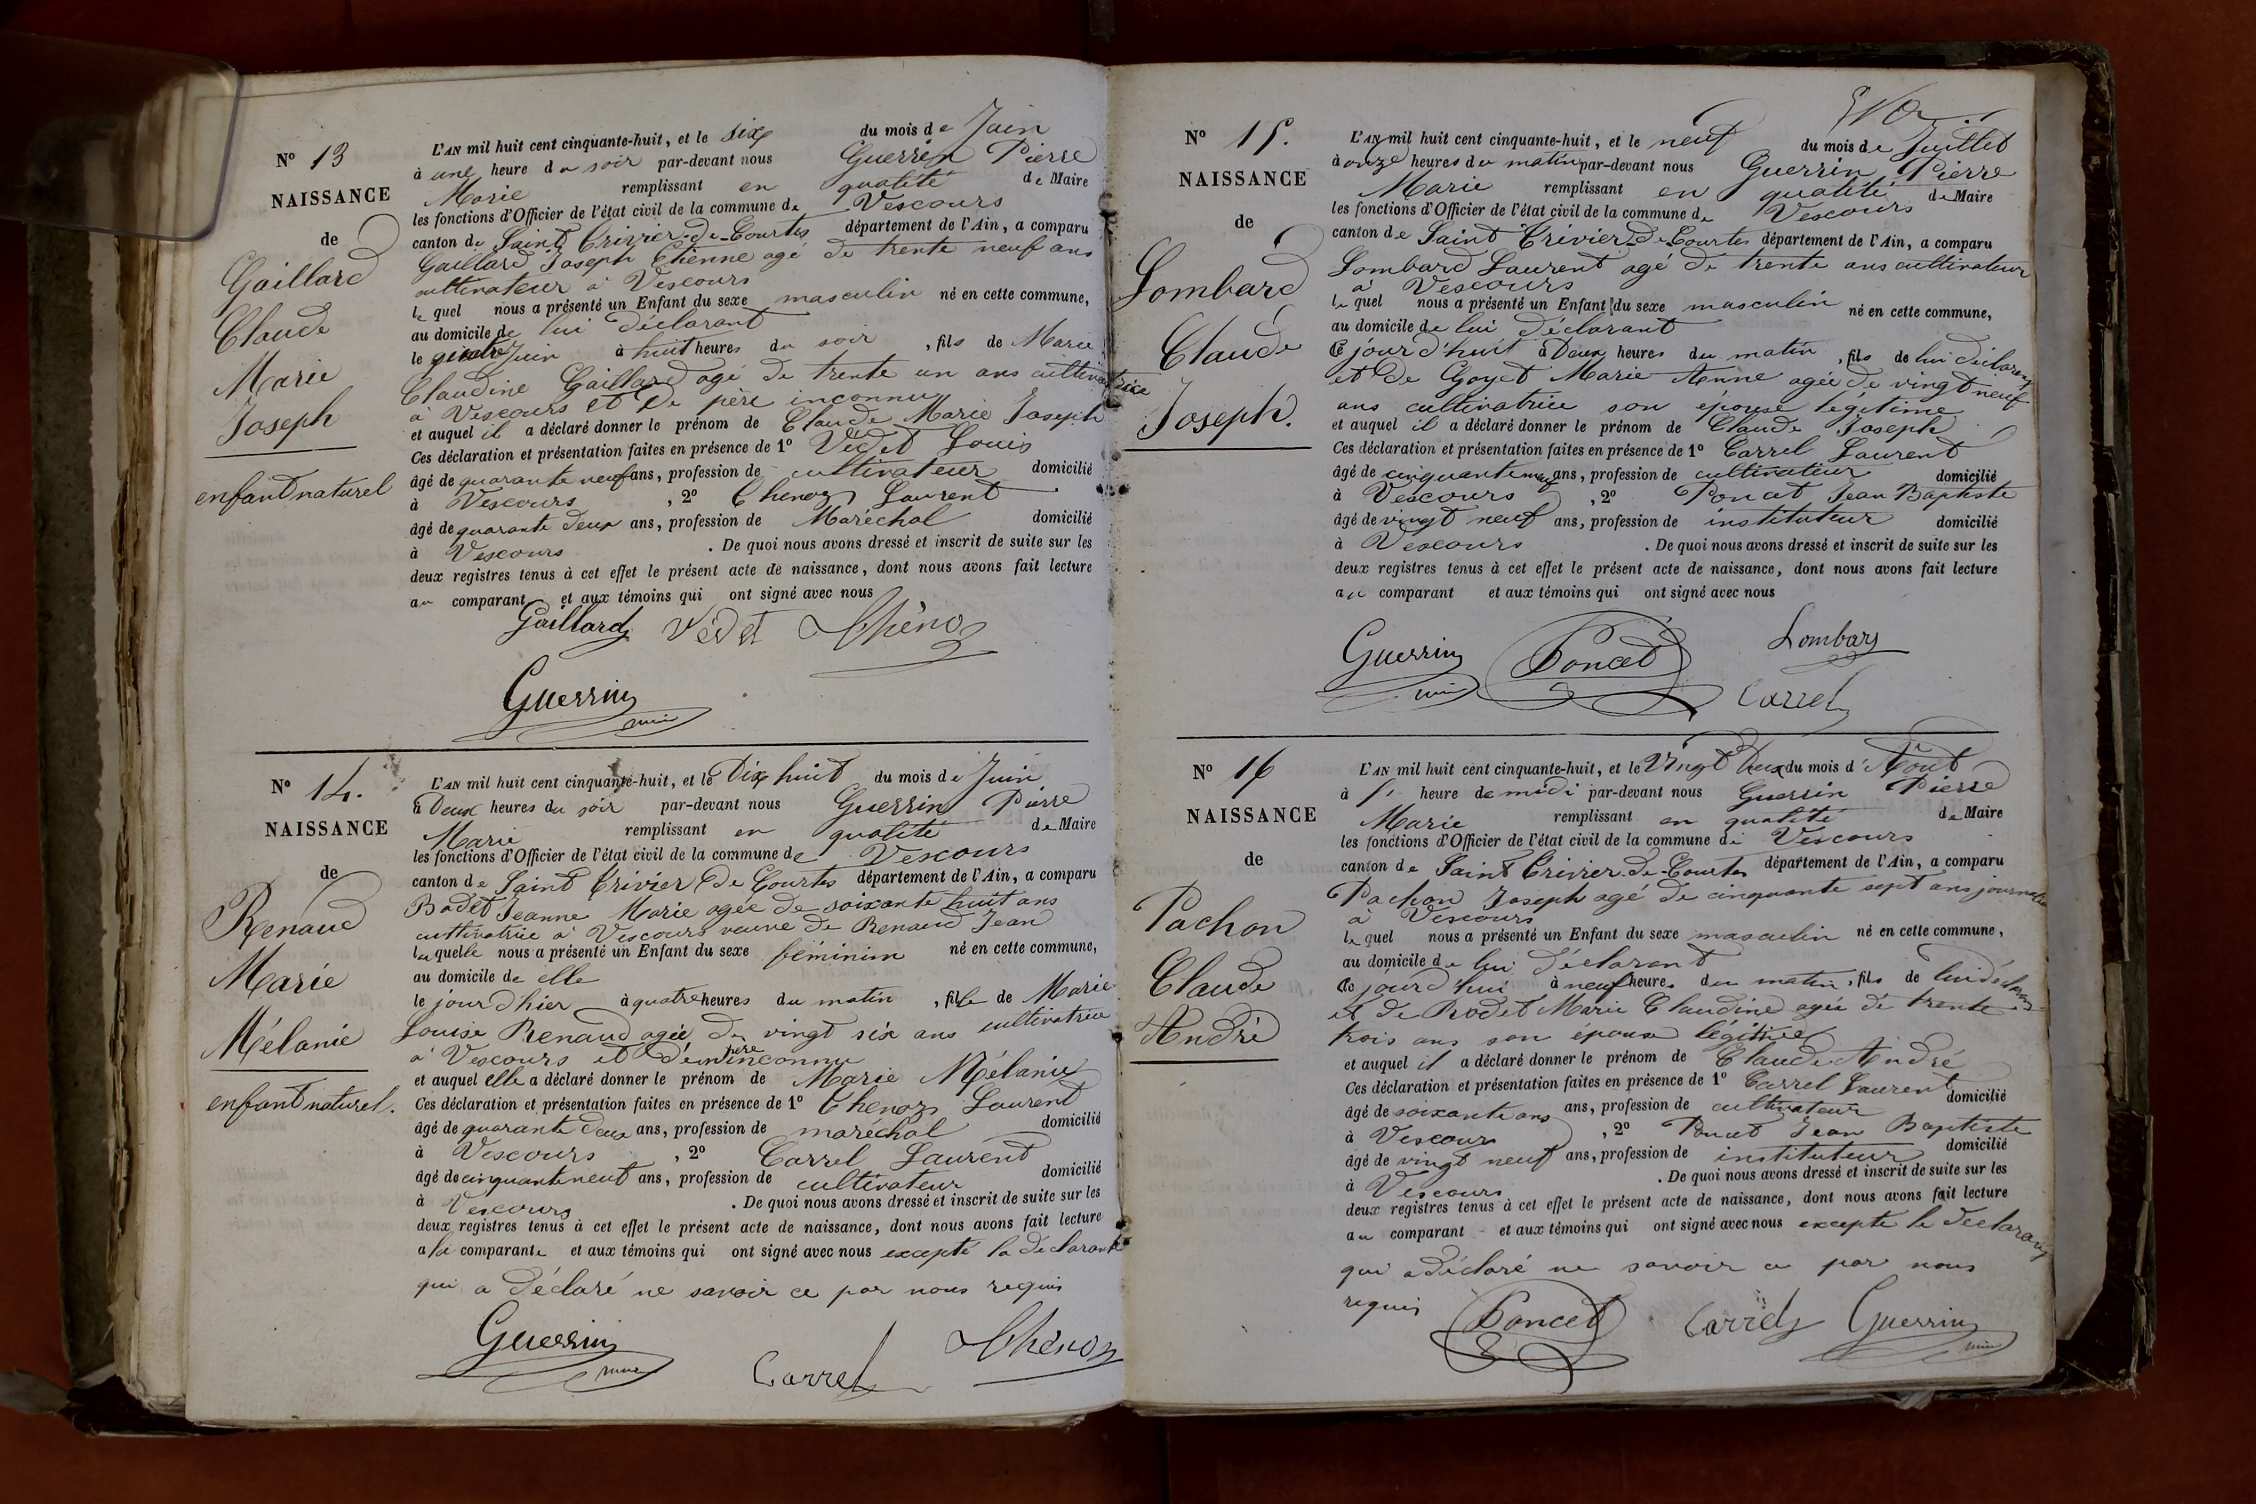 N° 13
NAISSANCE
de
Gaillard
Claude
Marie
Joseph
enfant naturel
L'AN mil huit cent cinquante-huit, et le six du mois de Juin
à une heure du soir par-devant nous Guerrin Pierre
Marie remplissant en qualité de Maire
les fonctions d'Officier de l'état civil de la commune de Vescours
canton de Saint Trivier-de-Courtes département de l'Ain, a comparu
Gaillard Joseph Etienne agé de trente neuf ans
cultivateur à Vescours
le quel nous a présenté un Enfant du sexe masculin né en cette commune,
au domicile de lui déclarant
le quatre Juin à huit heures du soir, fils de Marie
Claudine Gaillard agé de trente un ans cultivatrice
à Vescours et de père inconnu
et auquel il a déclaré donner le prénom de Claude Marie Joseph
Ces déclaration et présentation faites en présence de 1° Védet Louis
âgé de quarante neuf ans, profession de cultivateur domicilié
à Vescours, 2° Chenoz Laurent
âgé de quarante deux ans, profession de Maréchal domicilié
à Vescours. De quoi nous avons dressé et inscrit de suite sur les
deux registres tenus à cet effet le présent acte de naissance, dont nous avons fait lecture
au comparant et aux témoins qui ont signé avec nous
Gaillard Védet Chenoz
Guerrin
N° 14.
NAISSANCE
de
Renaud
Marie
Mélanie
enfant naturel.
L'AN mil huit cent cinquante-huit, et le Dix huit du mois de Juin
à Deux heures du soir par-devant nous Guerrin Pierre
Marie remplissant en qualité de Maire
les fonctions d'Officier de l'état civil de la commune de Vescours
canton de Saint Trivier de Courtes département de l'Ain, a comparu
Bodet Jeanne Marie agée de soixante huit ans
cultivatrice à Vescours veuve de Renaud Jean
laquelle nous a présenté un Enfant du sexe féminin né en cette commune,
au domicile de elle
le jour d'hier à quatre heures du matin, fille de Marie
Louise Renaud agée de vingt six ans cultivatrice
à Vescours et de père inconnu
et auquel elle a déclaré donner le prénom de Marie Mélanie
Ces déclaration et présentation faites en présence de 1° Chenoz Laurent
âgé de quarante deux ans, profession de maréchal domicilié
à Vescours, 2° Carrel Laurent
âgé de cinquante neuf ans, profession de cultivateur domicilié
à Vescours. De quoi nous avons dressé et inscrit de suite sur les
deux registres tenus à cet effet le présent acte de naissance, dont nous avons fait lecture
a la comparante et aux témoins qui ont signé avec nous excepté la déclarante
qui a déclaré ne savoir ce par nous requis
Guerrin Carrel Chenoz
N° 15.
NAISSANCE
de
Lombard
Claude
Joseph.
L'AN mil huit cent cinquante-huit, et le neuf du mois de Juillet
à onze heures du matin par-devant nous Guerrin Pierre
Marie remplissant en qualité de Maire
les fonctions d'Officier de l'état civil de la commune de Vescours
canton de Saint Trévier-de-Courtes département de l'Ain, a comparu
Lombard Laurent agé de trente ans cultivateur
à Vescours
le quel nous a présenté un Enfant du sexe masculin né en cette commune,
au domicile de lui déclarant
Ce jour d'huit à Deux heures du matin, fils de lui déclarant
et de Goyet Marie Anne agée de vingt neuf
ans cultivatrice son épouse légitime
et auquel il a déclaré donner le prénom de Claude Joseph
Ces déclaration et présentation faites en présence de 1° Carrel Laurent
âgé de cinquante neuf ans, profession de cultivateur domicilié
à Vescours, 2° Poncet Jean Baptiste
âgé de vingt neuf ans, profession de instituteur domicilié
à Vescours. De quoi nous avons dressé et inscrit de suite sur les
deux registres tenus à cet effet le présent acte de naissance, dont nous avons fait lecture
au comparant et aux témoins qui ont signé avec nous
Guerrin Poncet Lombard
Carrel
N° 16
NAISSANCE
de
Pachon
Claude
André
L'AN mil huit cent cinquante-huit, et le Vingt Deux du mois d'Août
à heure de midi par-devant nous Guerrin Pierre
Marie remplissant en qualité de Maire
les fonctions d'Officier de l'état civil de la commune de Vescours
canton de Saint Trivier-de-Courtes département de l'Ain, a comparu
Pachon Joseph agé de cinquante sept ans journalier
à Vescours
le quel nous a présenté un Enfant du sexe masculin né en cette commune,
au domicile de lui déclarant
Ce jour d'hui à neuf heures du matin, fils de lui déclarant
et de Rodet Marie Claudine agée de trente
trois ans son épouse légitime
et auquel il a déclaré donner le prénom de Claude André
Ces déclaration et présentation faites en présence de 1° Carrel Laurent
âgé de soixante ans ans, profession de cultivateur domicilié
à Vescours, 2° Poncet Jean Baptiste
âgé de vingt neuf ans, profession de instituteur domicilié
à Vescours. De quoi nous avons dressé et inscrit de suite sur les
deux registres tenus à cet effet le présent acte de naissance, dont nous avons fait lecture
au comparant et aux témoins qui ont signé avec nous excepté le déclarant
qui a déclaré ne savoir ce par nous
requis Poncet Carrel Guerrin